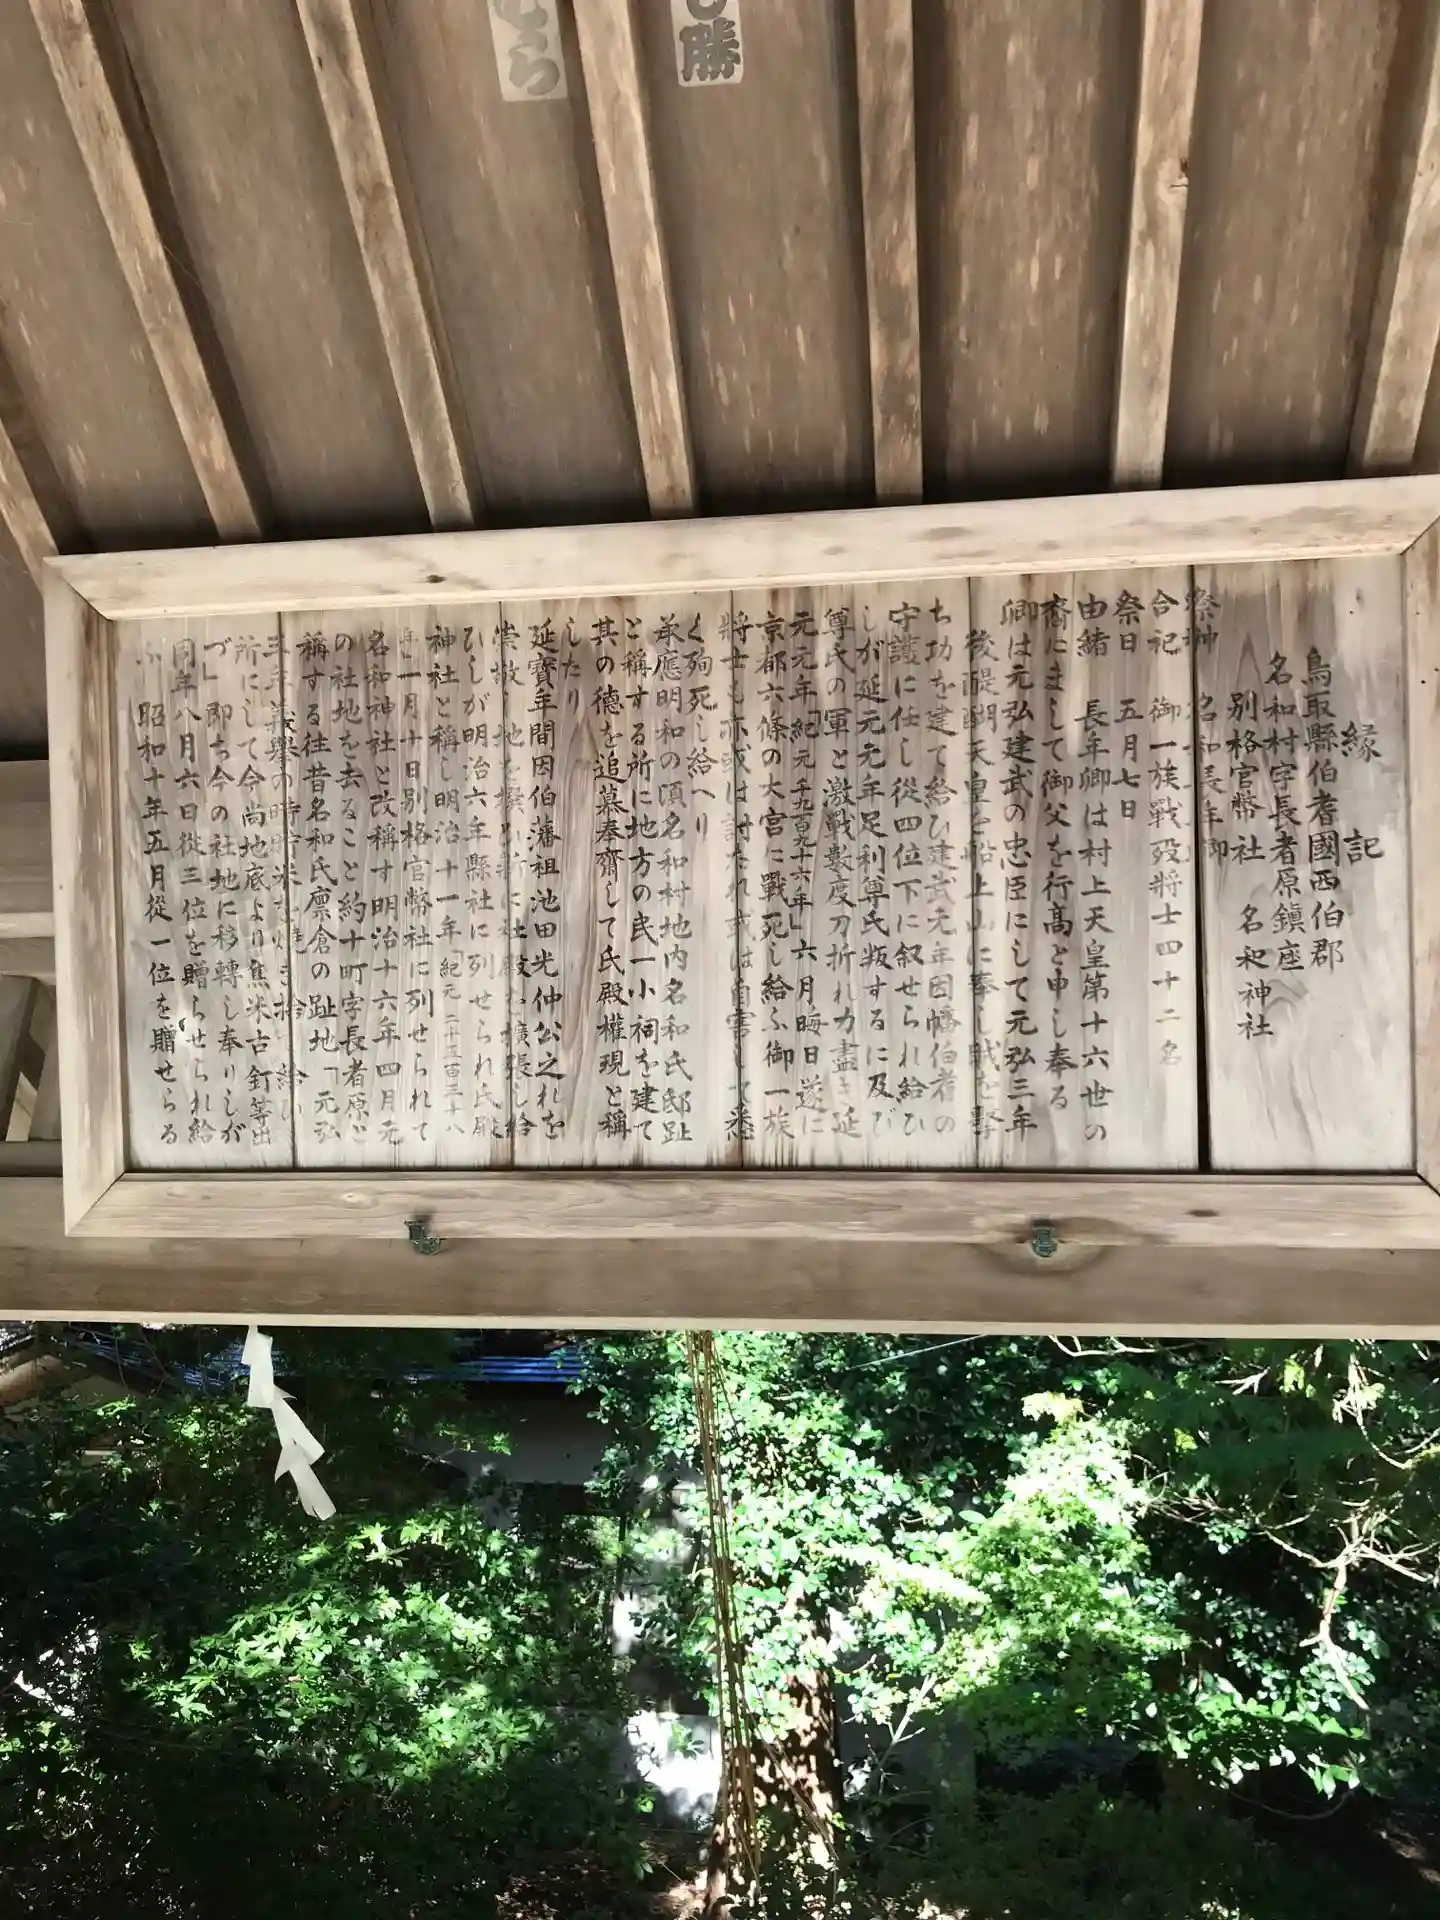 縁記
鳥取縣伯耆國西伯郡
名和村字長者原鎮座
別格官幣社 名和神社
祭神 名和長年卿
合祀 御一族戰歿將士四十二名
祭日 五月七日
由緒 長年卿は村上天皇第十六世の
裔にまして御父を行高と申し奉る
卿は元弘建武の忠臣にして元弘三年
後醍醐天皇を船上山に奉し賊を擊
ち功を建て給ひ建武元年因幡伯耆の
守護に任し從四位下に叙せられ給ひ
しが延元元年足利尊氏叛するに及び
尊氏の軍と激戰數度刀折れ力盡き延
元元年「紀元千九百九十六年」六月晦日遂に
京都六條の大宮に戰死し給ふ御一族
將士も亦或は討たれ或は自害して悉
く殉死し給へり
承應明和の頃名和村地内名和氏邸趾
と稱する所に地方の民一小祠を建て
其の德を追慕奉齋して氏殿權現と稱
したり
延寶年間因伯藩祖池田光仲公之れを
崇敬し地を撰ひ新に社殿を擴張し給
ひしが明治六年縣社に列せられ氏殿
神社と稱し明治十一年「紀元二千五百三十八
年」一月十日別格官幣社に列せられて
名和神社と改稱す明治十六年四月元
の社地を去ること約十町字長者原と
稱する往昔名和氏廩倉の趾地「元弘
三年義擧の時貯米を燒き捨て給ひし
所にして今尚地底より焦米古釘等出
づ」即ち今の社地に移轉し奉りしが
同年八月六日從三位を贈らせられ給
ふ 昭和十年五月從一位を贈せらる
勝